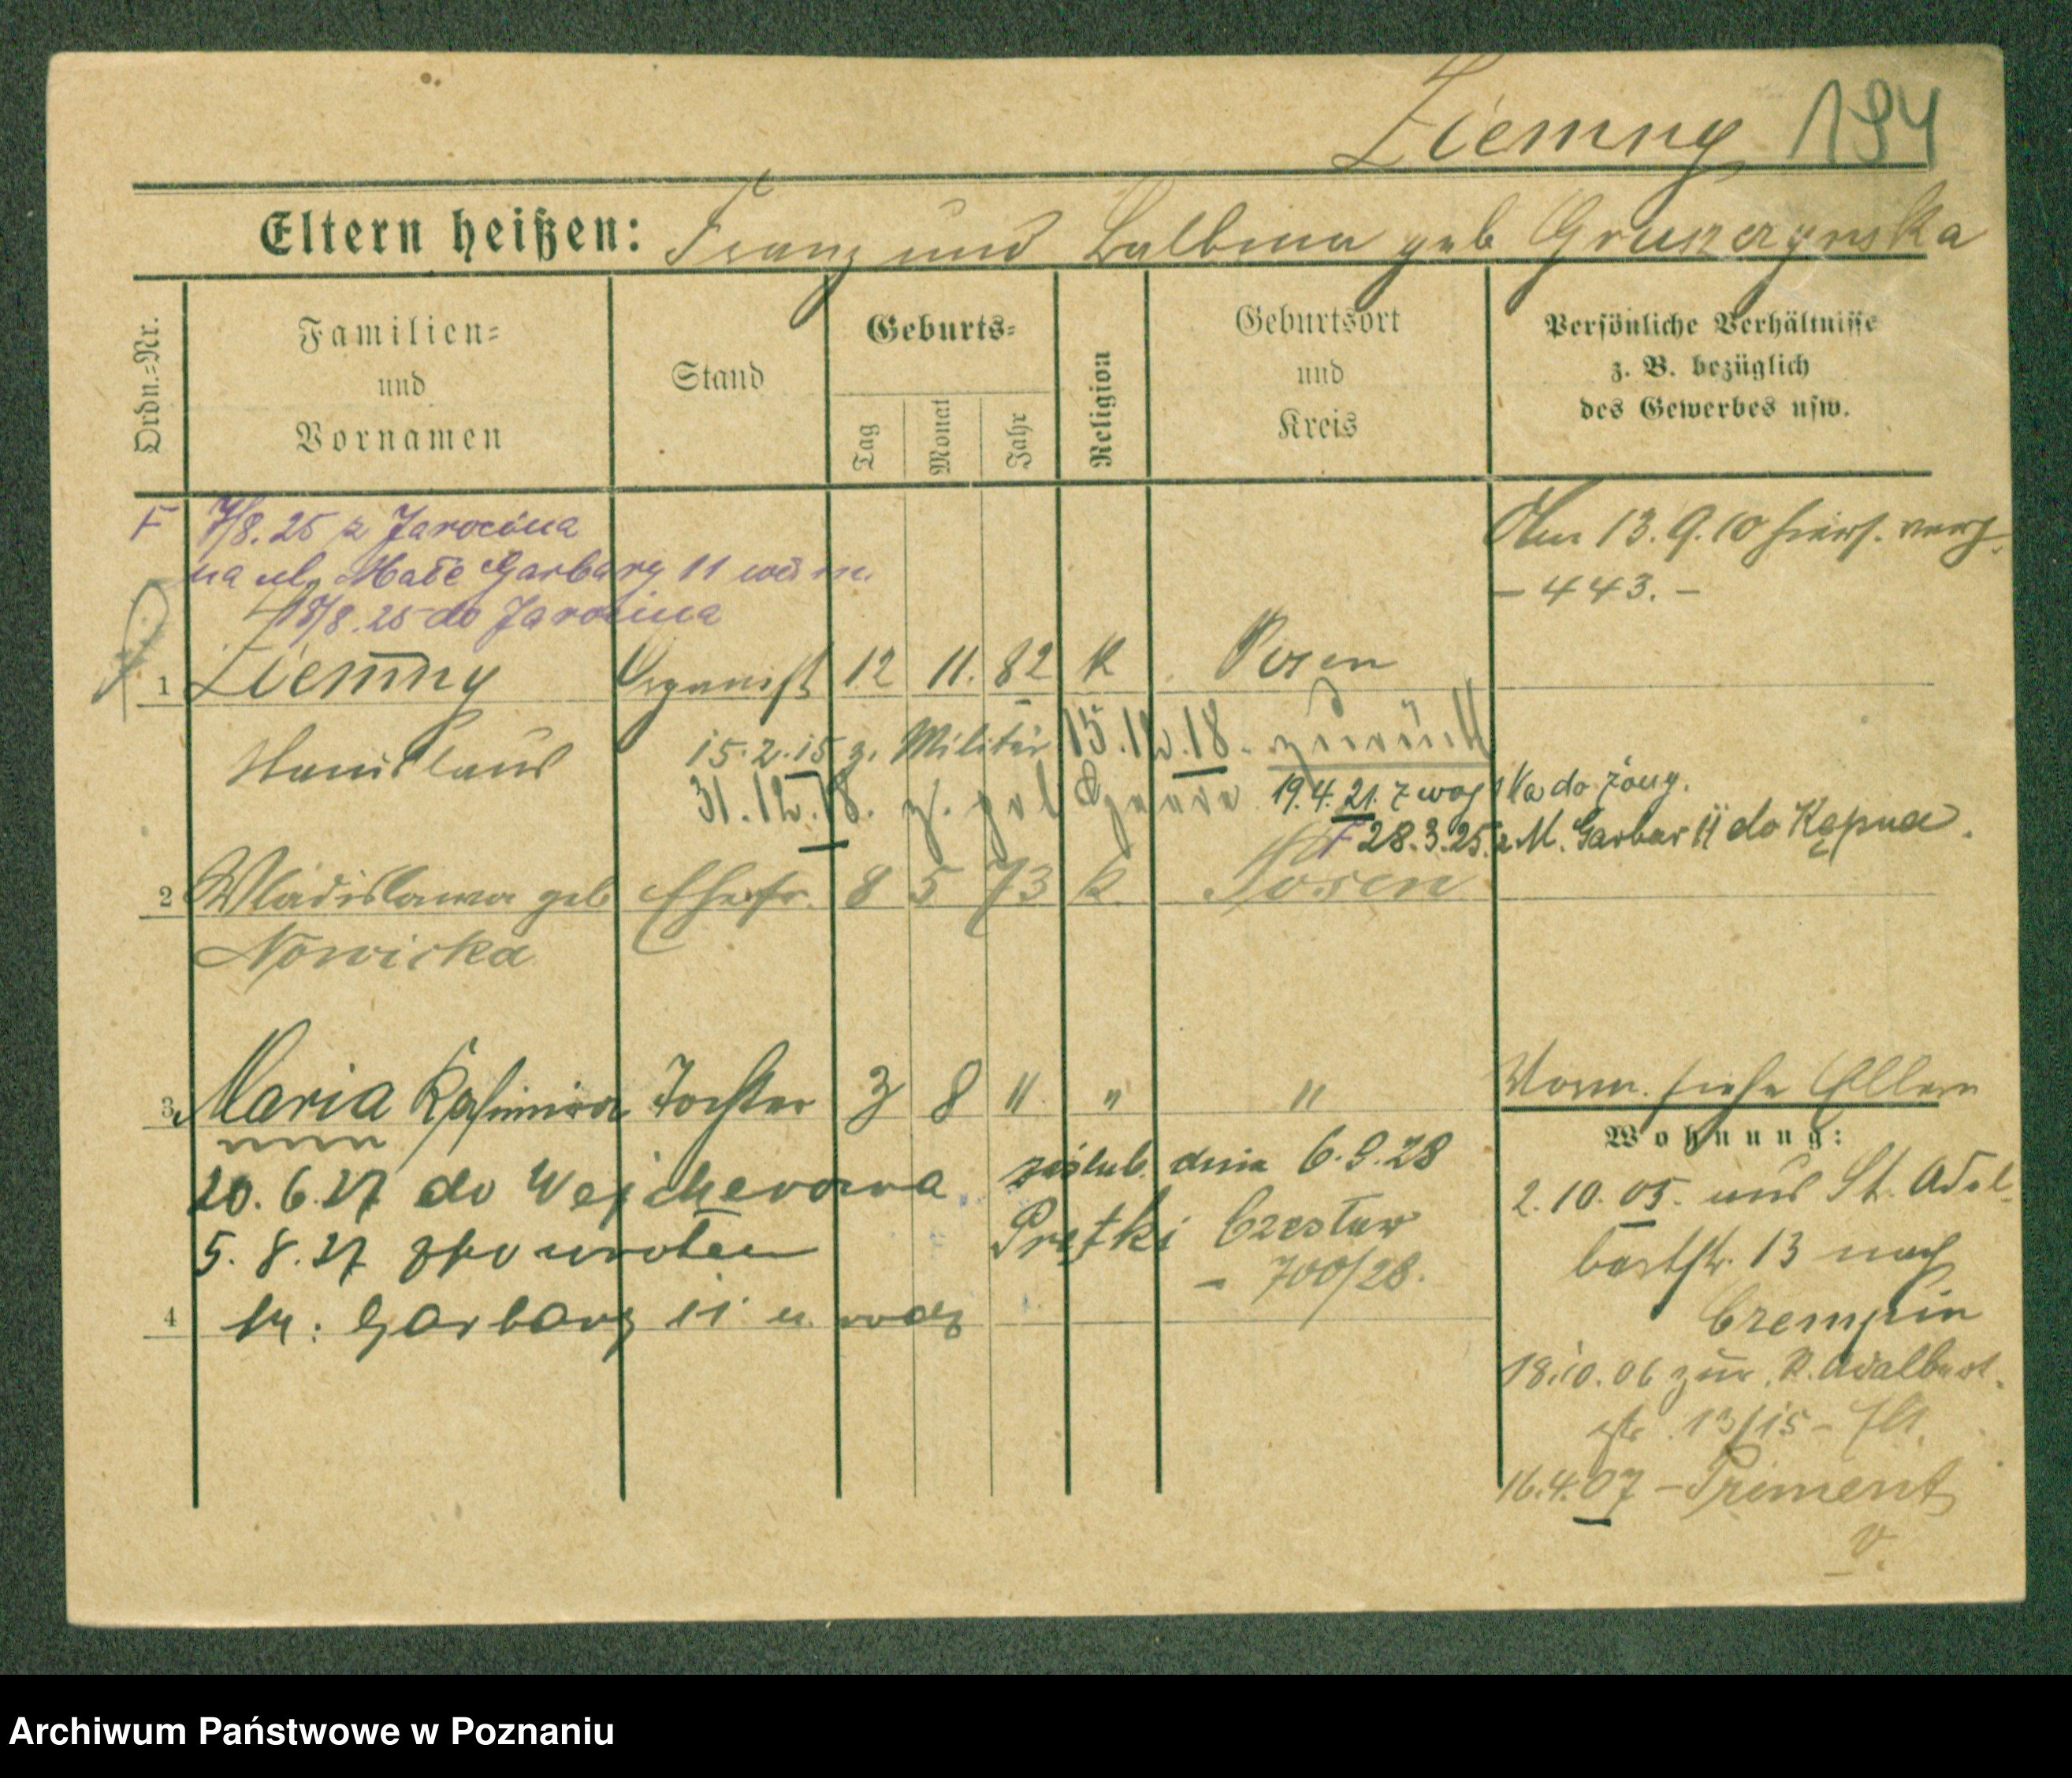 Ziemny 194
Eltern heißen: Franz und Balbina geb Gruszczynska
Ordn.-Nr.
Familien-
und
Vornamen
Stand
Geburts-
Tag
Monat
Jahr
Religion
Geburtsort
und
Kreis
Persönliche Verhältnisse
z. B. bezüglich
des Gewerbes usw.
F 7/8.25 z Jarocina
na ul. Małe Garbary 11 wd m.
18/8.25 do Jarocina
Am 13.9.10 hiers. verz.
- 443. -
1 Ziemny Organist 12 11. 82 k Posen
Stanislaus
15.2.15 z. Militär 15.12.18. zurück
31.12.18. z. pol
19.4.21. z do żony.
F 28.3.25. z M. Garbar 11 do Kępna.
2 Wladislawa geb Ehefr. 8 5 73 k. Posen
Nowicka
3 Maria Kasimira Tochter 3 8 " " "
Vorm. siehe Eltern
Wohnung:
20.6.27 do Wejcherowa
5.8.27 z powrotem
M: Garbary 11 u
4
zaślub. dnia 6.9.28
Prętki Czesław
- 700/28.
2.10.05. aus St. Adal-
bertstr. 13 nach
Czempin
18.10.06 zur. St. Adalbert-
str. 13/15 -
16.4.07 - Priment
v.
Archiwum Państwowe w Poznaniu